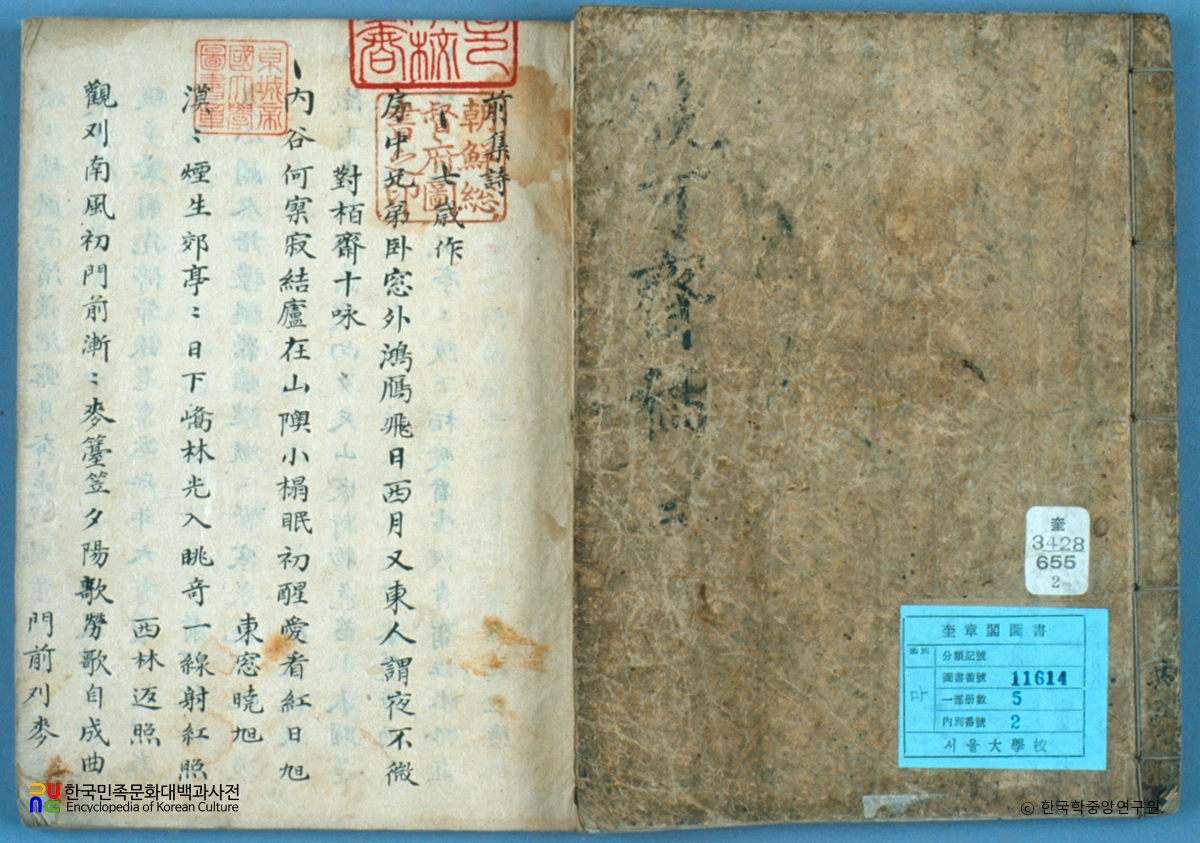 前集詩
七歲作
房中兄弟卧窓外鴻鴈飛日西月又東人謂夜不微
對栢齋十咏
內谷何寥寂結廬在山隩小榻眠初醒愛看紅日旭
東窓曉旭
漠〻煙生郊亭〻日下嶠林光入眺奇一線射紅照
西林返照
觀刈南風初門前漸〻麥䑓笠夕陽歌勞歌自成曲
門前刈麥
朝鮮総督府圖書之印
京城帝國大學圖書章
齋
二
奎
3428
655
2
奎章閣圖書
分類記號
圖書番號 11614
一部冊數 5
內別番號 2
서울大學校
한국민족문화대백과사전
Encyclopedia of Korean Culture
© 한국학중앙연구원